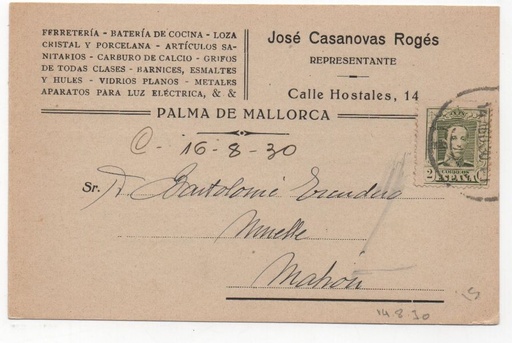 FERRETERÍA - BATERÍA DE COCINA - LOZA
CRISTAL Y PORCELANA - ARTÍCULOS SA-
NITARIOS - CARBURO DE CALCIO - GRIFOS
DE TODAS CLASES - BARNICES, ESMALTES
Y HULES - VIDRIOS PLANOS - METALES
APARATOS PARA LUZ ELÉCTRICA, & &
José Casanovas Rogés
REPRESENTANTE
Calle Hostales, 14
PALMA DE MALLORCA
C - 16-8-30
Sr. D. Bartolomé Escudero
Muelle
Mahón
CORREOS
ESPAÑA
14.8.30